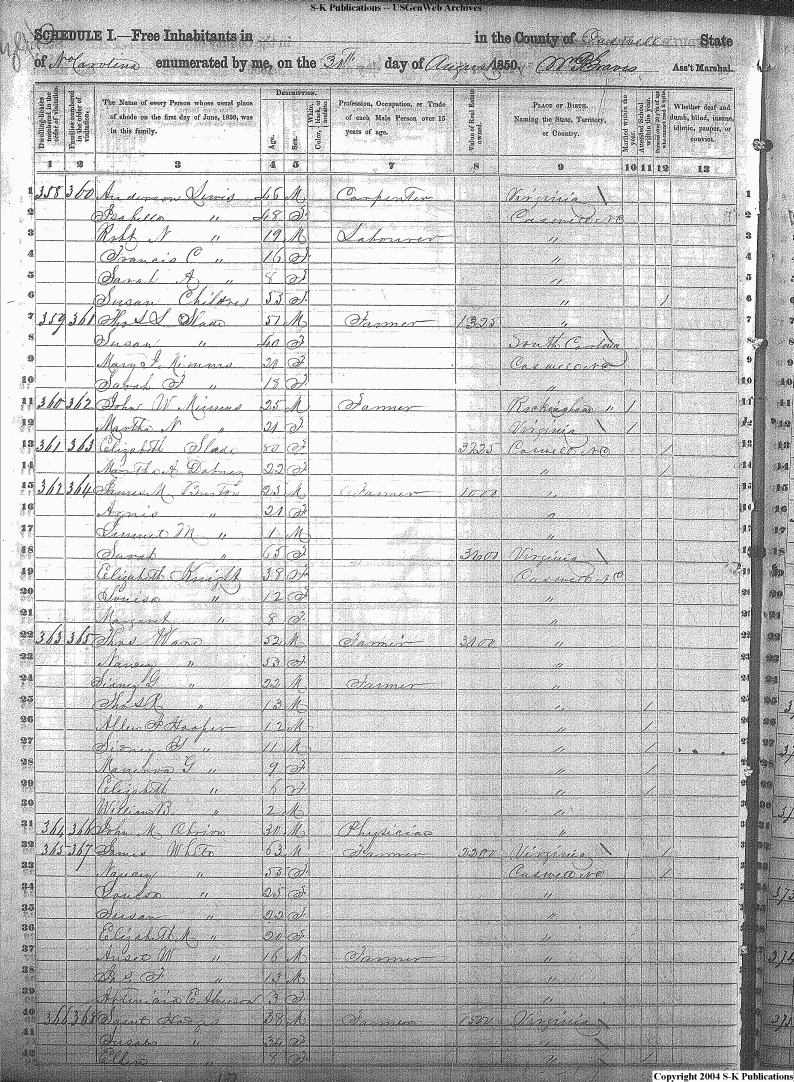 S-K Publications -- USGenWeb Archives
SCHEDULE I.—Free Inhabitants in in the County of Caswell State
of No Carolina enumerated by me, on the 31th day of August 1850. Wm Graves Ass't Marshal.
Dwelling-houses numbered in the order of visitation.
Families numbered in the order of visitation.
The Name of every Person whose usual place of abode on the first day of June, 1850, was in this family.
Description.
Age.
Sex.
Color, White, black, or mulatto.
Profession, Occupation, or Trade of each Male Person over 15 years of age.
Value of Real Estate owned.
Place of Birth. Naming the State, Territory, or Country.
Married within the year.
Attended School within the year.
Whether deaf and dumb, blind, insane, idiotic, pauper, or convict.
1 2 3 4 5 6 7 8 9 10 11 12 13
1 358 360 Anderson Lewis 46 M Carpenter Virginia \ 1
2 Isabella " 48 F Caswell NC 2
3 Robt N " 19 M Labourer " 3
4 Francis C " 16 F " 4
5 Sarah A " 8 F " 5
6 Susan Childres 53 F " / 6
7 359 361 Thos L Slade 51 M Farmer 1325 " 7
8 Susan " 40 F South Carolina 8
9 Mary J. Nimms 20 F Caswell NC 9
10 Sarah F " 18 F " 10
11 360 362 John W Mimms 25 M Farmer Rockingham " / 11
12 Martha N " 21 F Virginia \ / 12
13 361 363 Elizabeth Slade 80 F 3225 Caswell NC / 13
14 Martha A Dabney 22 F " / 14
15 362 364 James M Burton 25 M Farmer 1000 " 15
16 Agnis " 21 F " 16
17 M " 1 M " 17
18 Sarah " 65 F Virginia \ 18
19 Elizabeth Knight 38 F Caswell NC 19
20 Louisa " 12 F " 20
21 Margaret " 8 F " 21
22 363 365 Thos Ware 52 M Farmer " 22
23 Nancy " 53 F " 23
24 Sidney G " 22 M Farmer " 24
25 Thos R " 13 M " / 25
26 Allen F Hooper 12 M " / 26
27 Sidney " 11 M " / 27
28 Manerva G " 9 F " / 28
29 Elizabeth " 6 F " / 29
30 William B. " 2 M " 30
31 364 366 John M Obrion M Physician " 31
32 365 367 James White 63 M Farmer 2200 Virginia \ / 32
33 Nancy " 53 F Caswell NC / 33
34 Louisa " 25 F " 34
35 Susan " 22 F " 35
36 Elizabeth M " 20 F " 36
37 W " 16 M Farmer " 37
38 F " 13 M " 38
39 E Alverson 3 F " 39
40 366 368 Hodges 38 M Farmer 1500 Virginia \ 40
41 Susan " 34 F " 41
42 Ellen " 8 F " / 42
Copyright 2004 S-K Publications